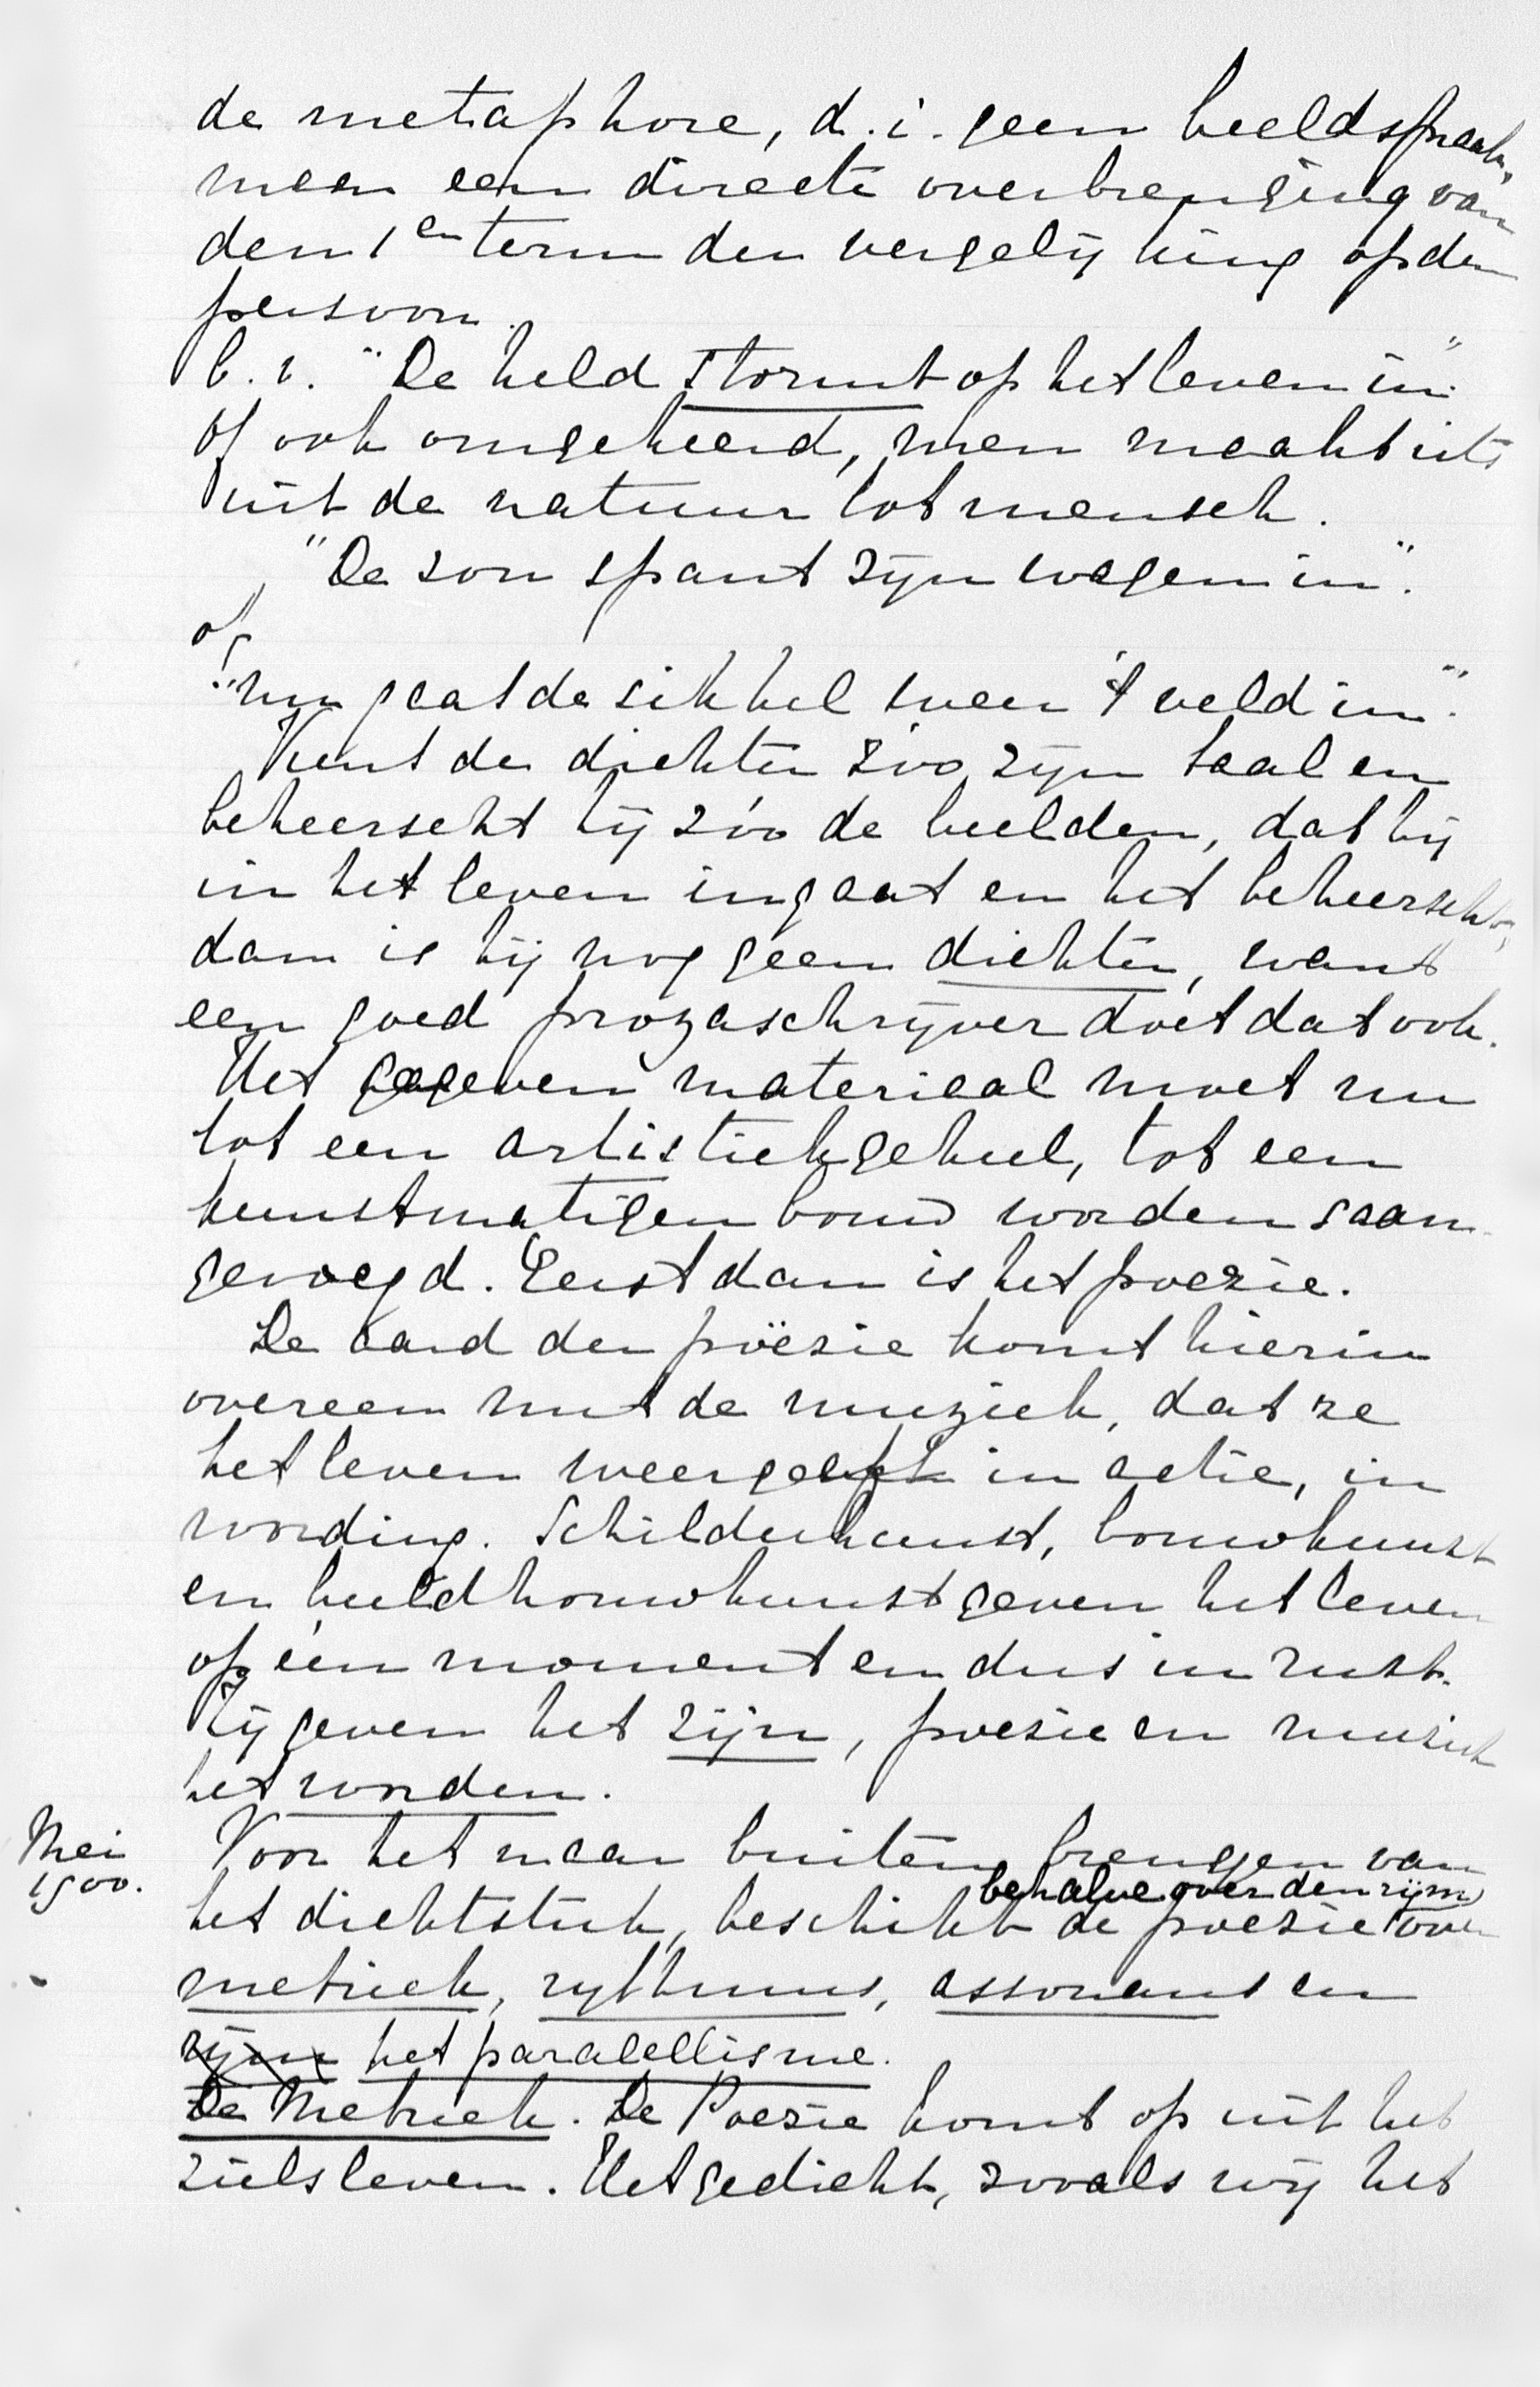 de metaphore, d.i. geen beeldspraak,
maar een directe overbrenging van
den 1en term der vergelijking op den
persoon.
b.v. "De held stormt op het leven in"
of ook omgekeerd, men maakt iets
uit de natuur tot mensch.
"De zon spant zijn wagen in".
of
"nu gaat de sikkel weer 't veld in".
Kent de dichter zóó zijn taal en
beheerscht hij zóó de beelden, dat hij
in het leven ingaat en het beheerscht,
dan is hij nog geen dichter, want
een goed prozaschrijver doet dat ook.
Het gegeven materiaal moet nu
tot een artistiek geheel, tot een
kunstmatigen bouw worden saam-
gevoegd. Eerst dan is het poezie.
De aard der poëzie komt hierin
overeen met de muziek, dat ze
het leven weergeeft in actie, in
wording. Schilderkunst, bouwkunst
en beeldhouwkunst geven het leven
op één moment en dus in rust.
Zij geven het zijn, poezie en muziek
het worden.
Mei
1900.
Voor het naar buiten brengen van
behalve over den rijm
het dichtstuk, beschikt de poezie over
metriek, rythmus, assonans en
rijm het paralellisme.
De Metriek. De Poezie komt op uit het
zielsleven. Het gedicht, zooals wij het